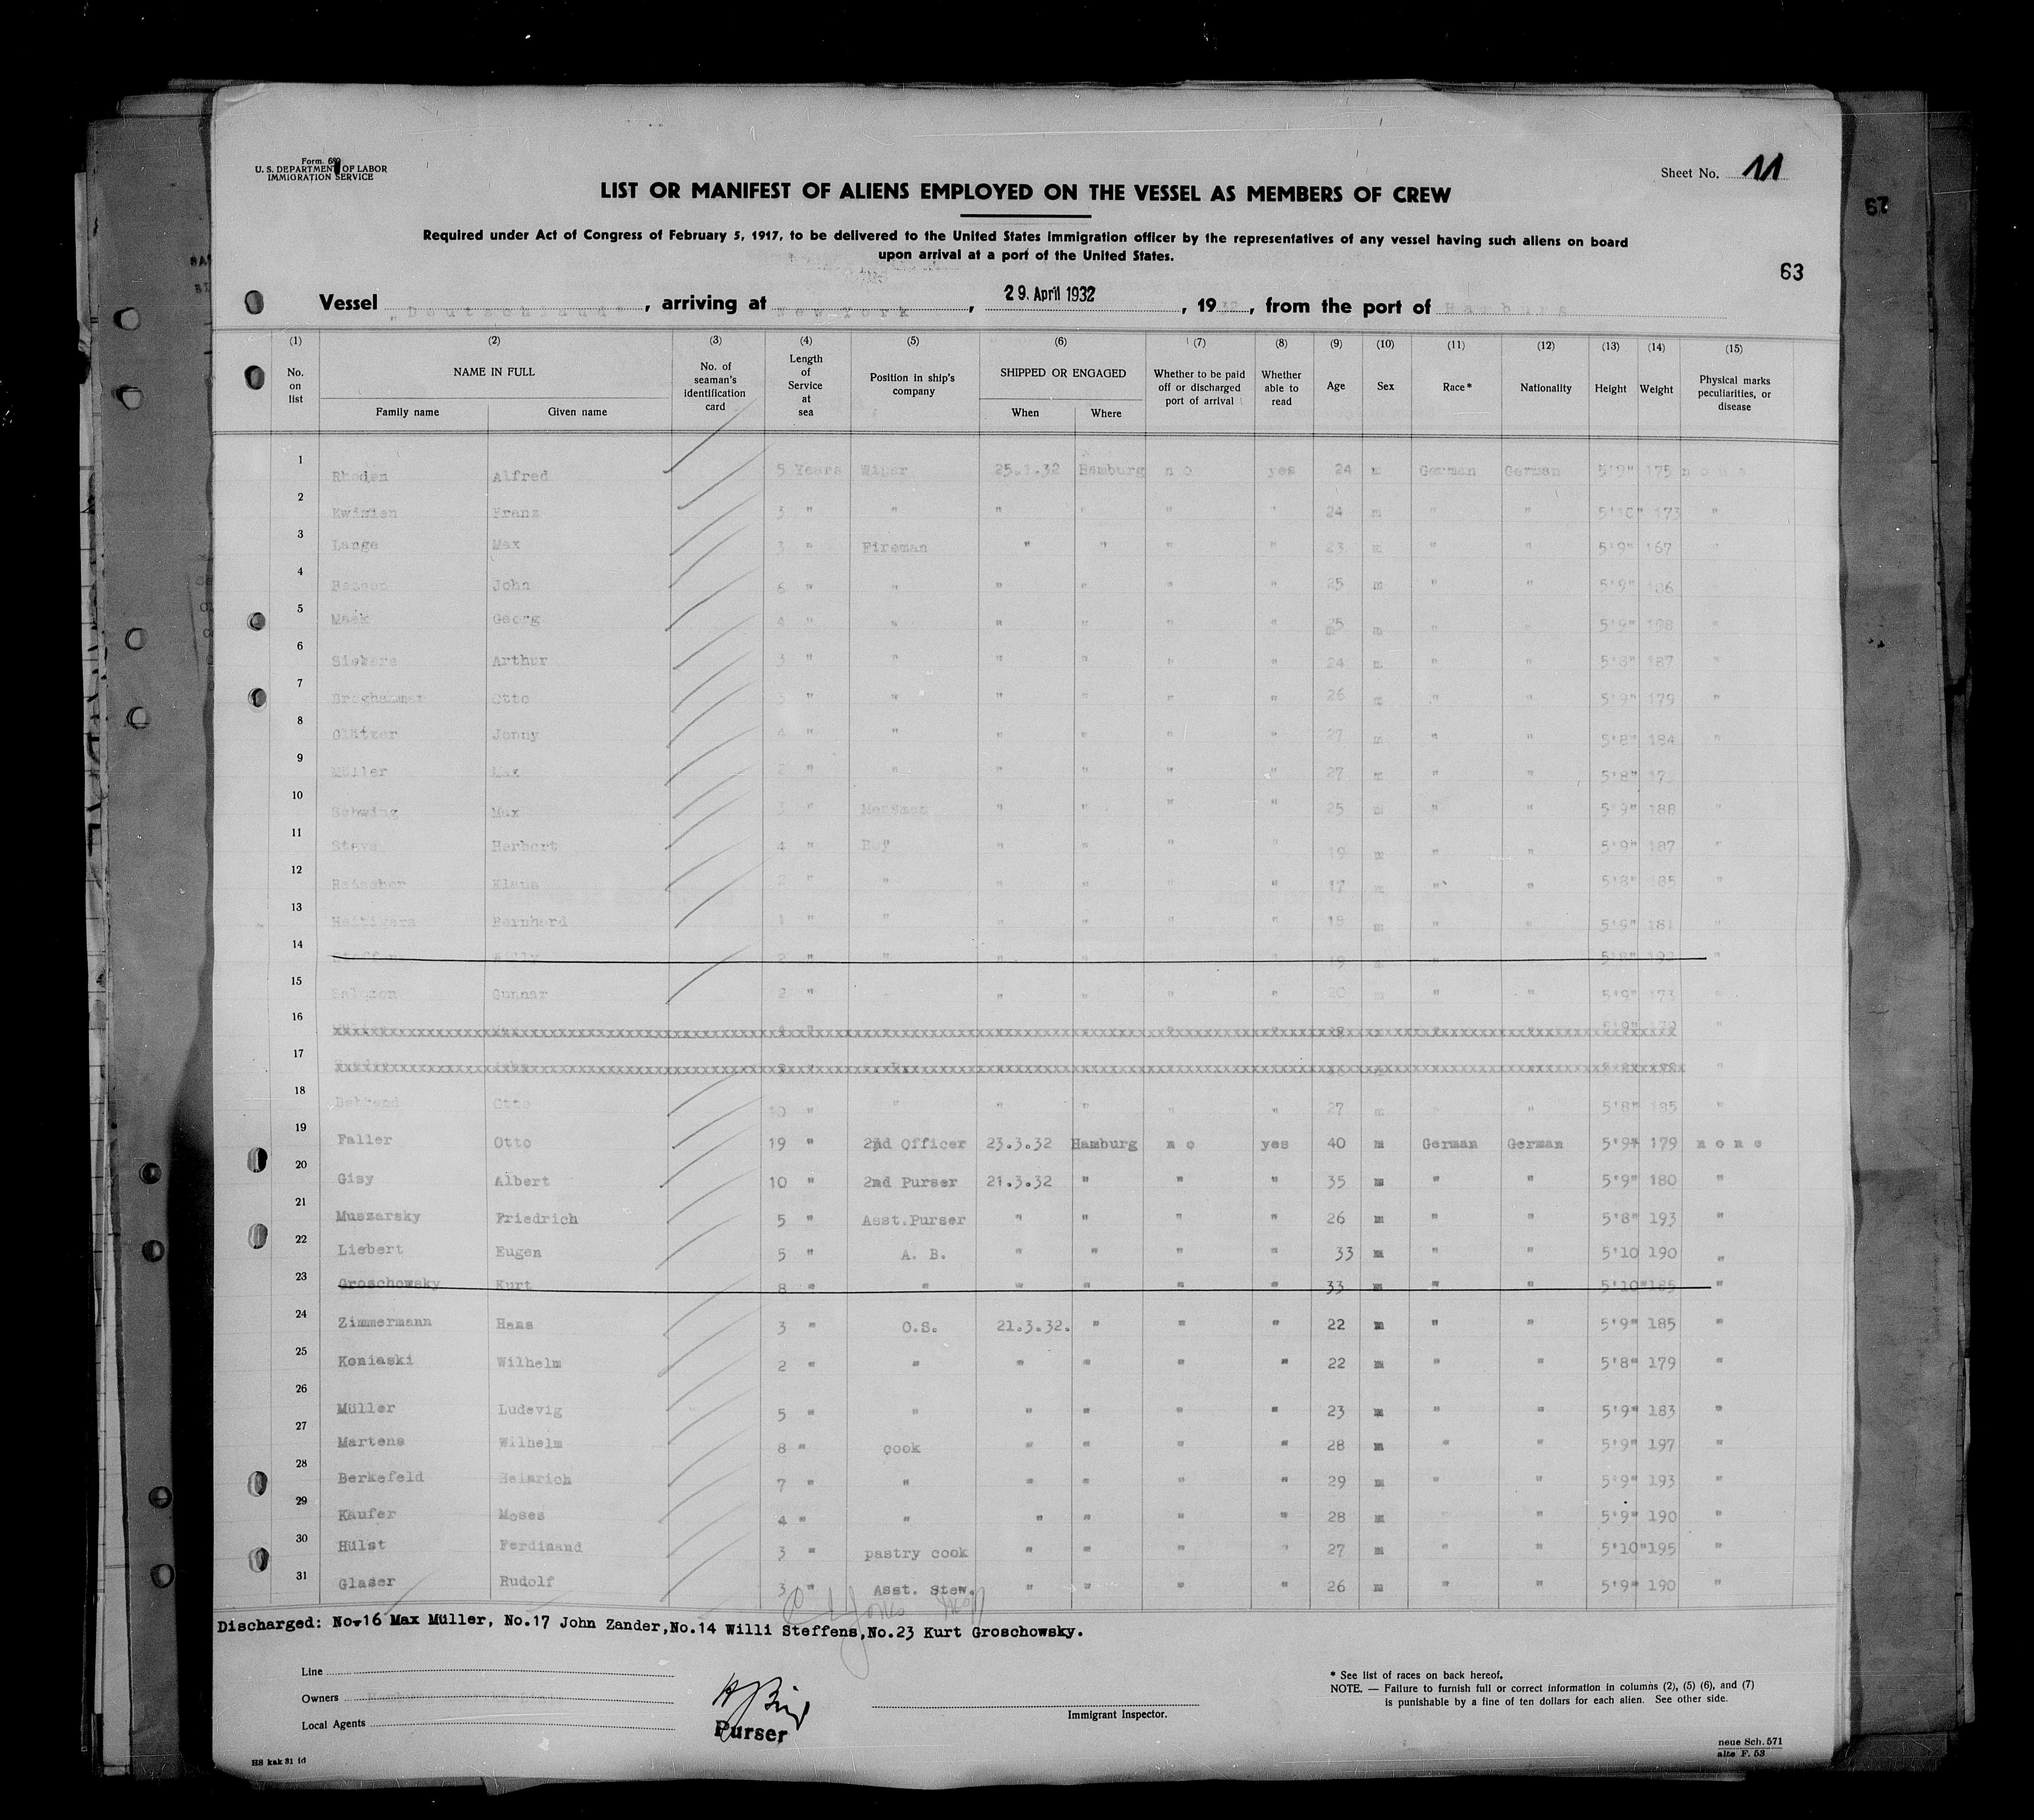 Form. 680
U. S. DEPARTMENT OF LABOR
IMMIGRATION SERVICE
Sheet No. 11
LIST OR MANIFEST OF ALIENS EMPLOYED ON THE VESSEL AS MEMBERS OF CREW
Required under Act of Congress of February 5, 1917, to be delivered to the United States immigration officer by the representatives of any vessel having such aliens on board
upon arrival at a port of the United States.
63
Vessel "Deutschland", arriving at New York, 29. April 1932, 1932, from the port of Hamburg
(1) (2) (3) (4) (5) (6) (7) (8) (9) (10) (11) (12) (13) (14) (15)
No. on list NAME IN FULL Family name Given name No. of seaman's identification card Length of Service at sea Position in ship's company SHIPPED OR ENGAGED When Where Whether to be paid off or discharged port of arrival Whether able to read Age Sex Race* Nationality Height Weight Physical marks peculiarities, or disease
1 Rhoden Alfred 5 Years Wiper 25.1.32 Hamburg no yes 24 m German German 5'9" 175 none
2 Kwisien Franz 3 " " " " " " 24 m " " 5'10" 173 "
3 Lange Max 3 " Fireman " " " " 23 m " " 5'9" 167 "
4 John 6 " " " " " " 25 m " " 5'9" 186 "
5 Mask Georg 4 " " " " " " 25 m " " 5'9" 198 "
6 Siekers Arthur 3 " " " " " " 24 m " " 5'8" 187 "
7 Otto " " " " " " 26 m " " 5'9" 179 "
8 Glätzer Jonny 4 " " " " " " 27 m " " 5'8" 184 "
9 Müller Max 2 " " " " " " 27 m " " 5'8" "
10 Schwing Max 3 " Messman " " " " 25 m " " 5'9" 188 "
11 Steve Herbert 4 " Boy " " " " 19 m " " 5'9" 187 "
12 Klaus 2 " " " " " " 17 m " " 5'8" 185 "
13 Bernhard 1 " " " " " " 18 m " " 5'9" 181 "
14 Steffens Willy 2 " " " " " " 19 m " " 5'8" "
15 Salomon Gunnar 2 " " " " " 20 m " " 5'9" 173 "
16
17
18 Behrend Otto 10 " " " " " " 27 m " " 5'8" 185 "
19 Faller Otto 19 " 2nd Officer 23.3.32 Hamburg no yes 40 m German German 5'9" 179 none
20 Gisy Albert 10 " 2nd Purser 21.3.32 " " " 35 m " " 5'9" 180 "
21 Muszarsky Friedrich 5 " Asst.Purser " " " " 26 m " " 5'8" 193 "
22 Liebert Eugen 5 " A. B. " " " " 33 m " " 5'10 190 "
23 Groschowsky Kurt 8 " " " " " " 33 m " " 5'10" 185 "
24 Zimmermann Hans 3 " O.S. 21.3.32. " " " 22 m " " 5'9" 185 "
25 Koniaski Wilhelm 2 " " " " " " 22 m " " 5'8" 179 "
26 Müller Ludevig 5 " " " " " " 23 m " " 5'9" 183 "
27 Martens Wilhelm 8 " cook " " " " 28 m " " 5'9" 197 "
28 Berkefeld Heinrich 7 " " " " " " 29 m " " 5'9" 193 "
29 Kaufer Moses 4 " " " " " " 28 m " " 5'9" 190 "
30 Hülst Ferdinand 3 " pastry cook " " " " 27 m " " 5'10" 195 "
31 Glaser Rudolf 3 " Asst. Stew. " " " " 26 m " " 5'9" 190 "
Discharged: No.16 Max Müller, No.17 John Zander,No.14 Willi Steffens,No.23 Kurt Groschowsky.
Line
Owners
Local Agents
Purser
Immigrant Inspector.
* See list of races on back hereof.
NOTE. — Failure to furnish full or correct information in columns (2), (5) (6), and (7)
is punishable by a fine of ten dollars for each alien. See other side.
HS kak 31 id
neue Sch. 571
alte F. 53